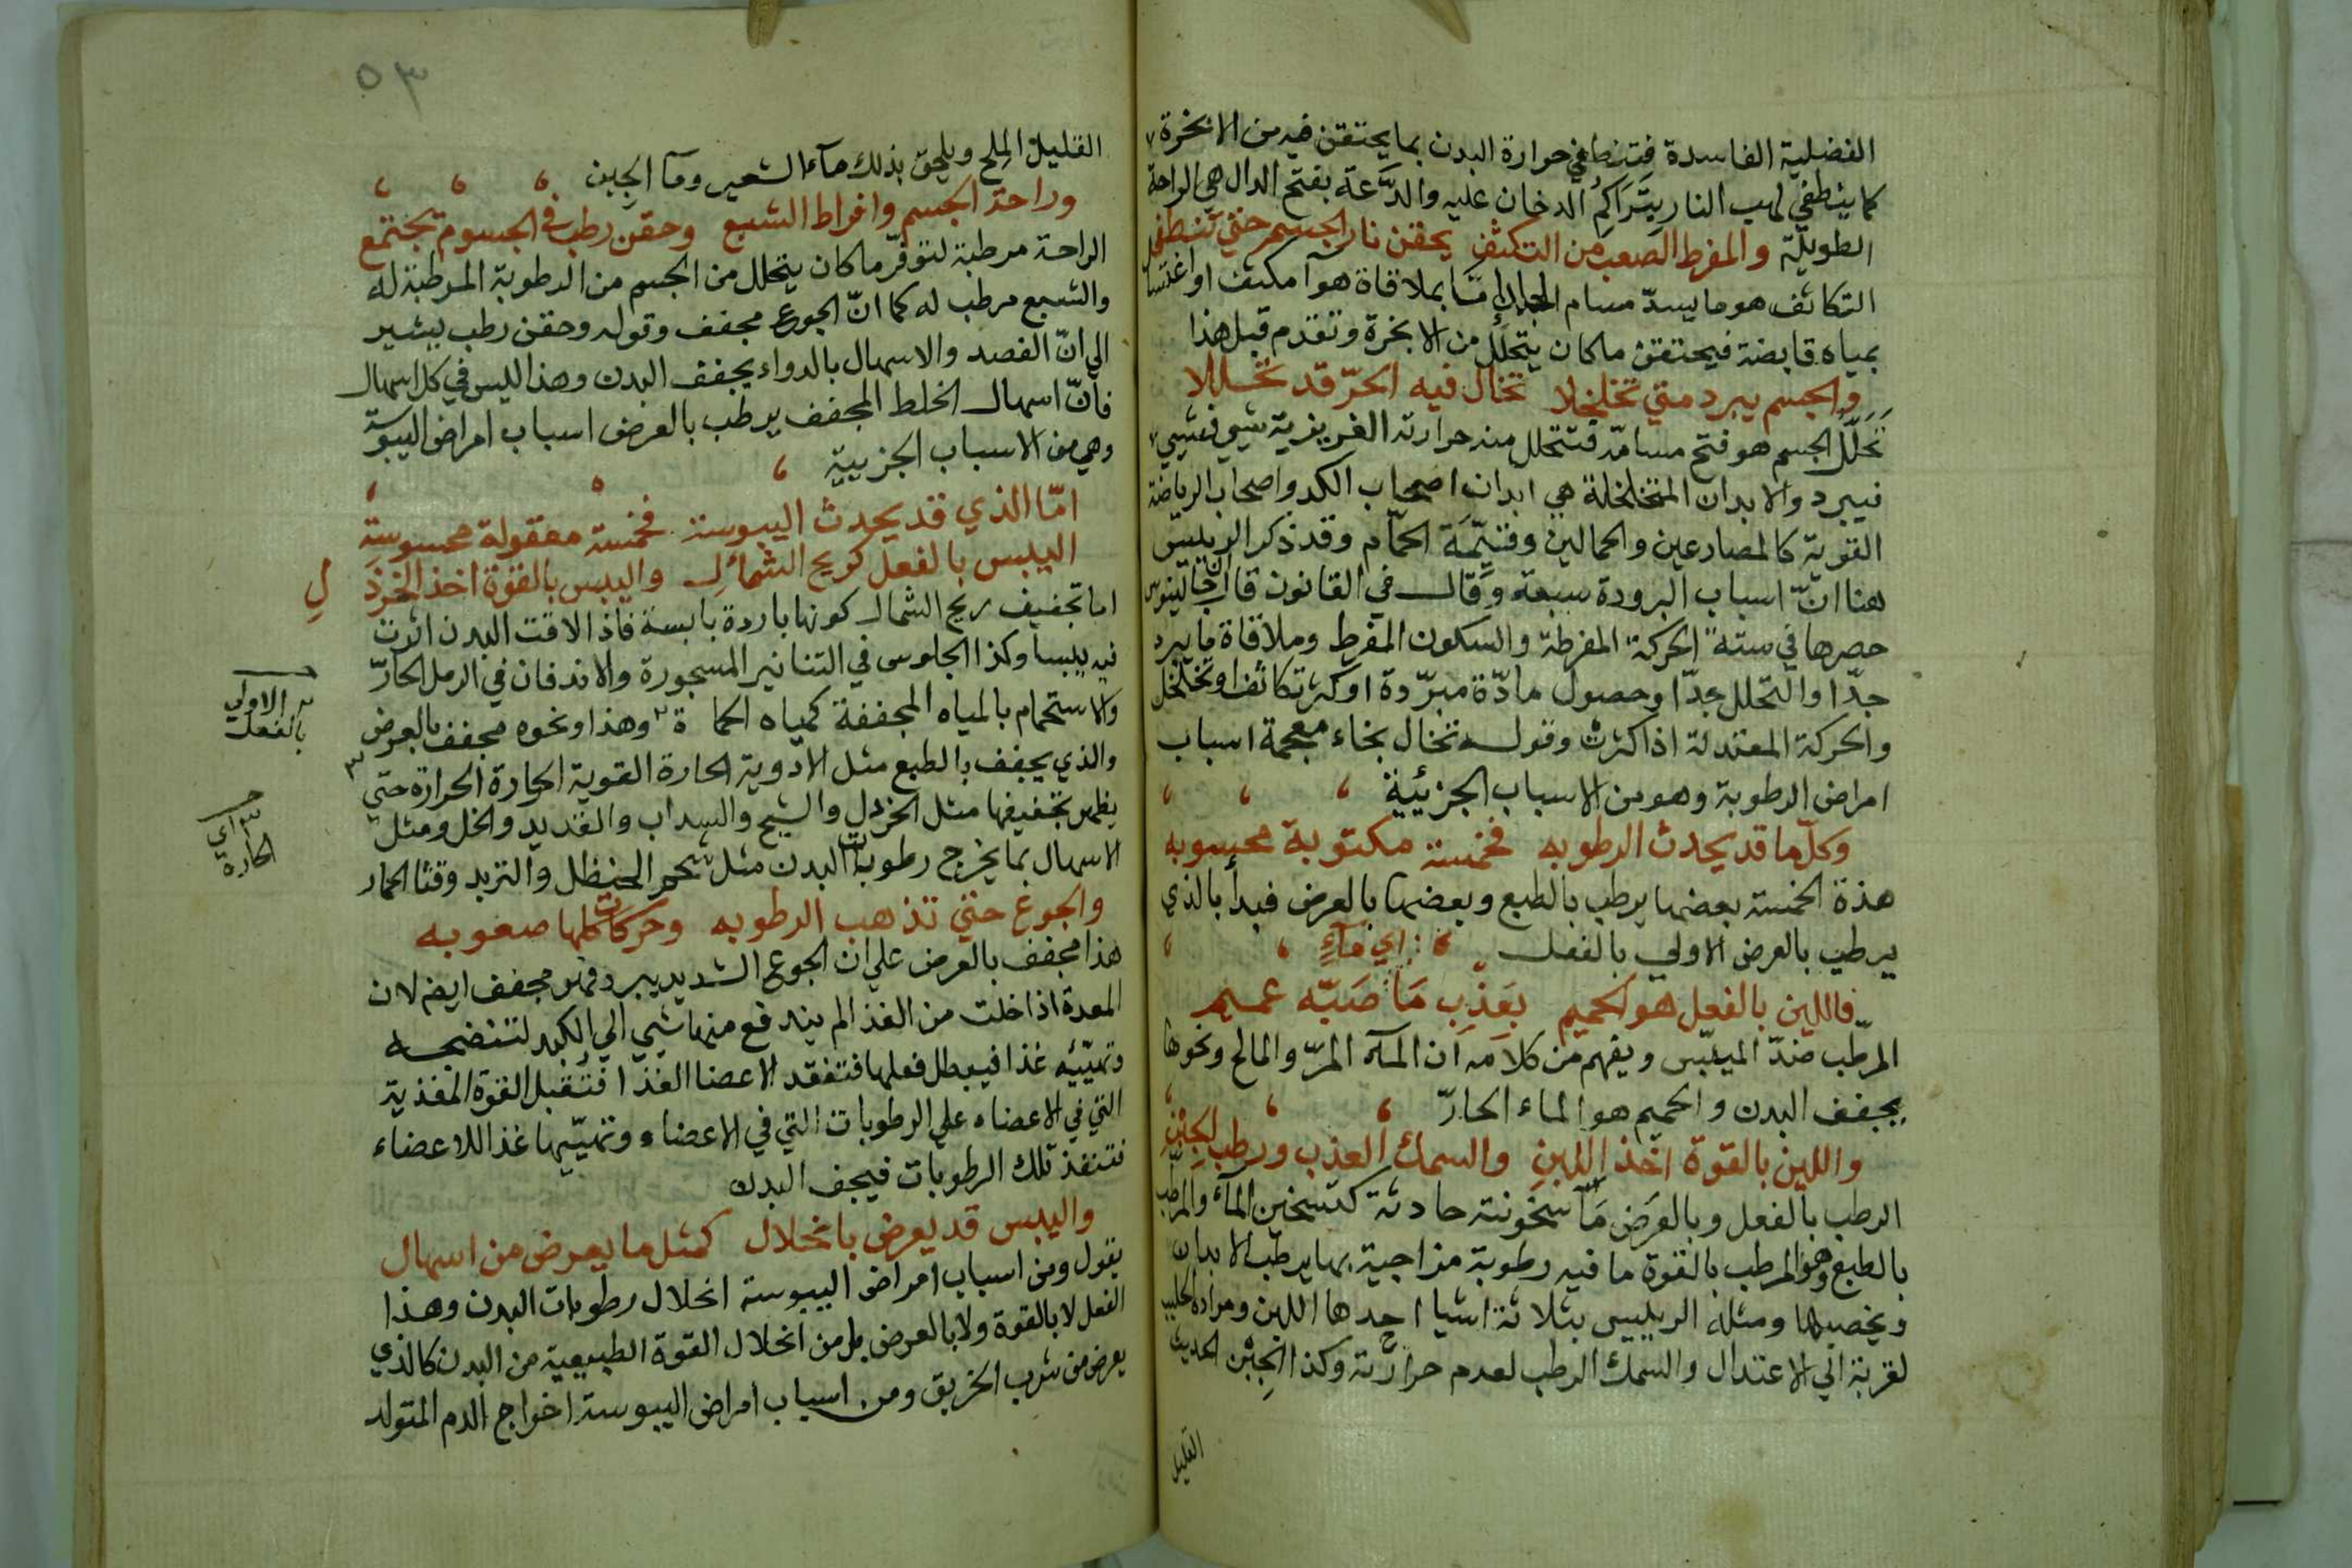 الفضلية الفاسدة فتنطفي حرارة البدن بما يحتقن فيه من الابخرة
كما ينطفي لهب النار بتراكم الدخان عليه والدَّعة بفتح الدال هي الراحة
الطويلة والمفرط الصعب من التكثف يحقن نار الجسم حتي تنطفي
التكاثف هو ما يسدّ مسام الجلد إمّا بملاقاة هوآ مكثف او اغتسال
بمياه قابضة فيحتقن ما كان يتحلل من الابخرة وتقدم قبل هذا
والجسم يبرد متي تخلخلا تخال فيه الحرّ قد تحللا
تَخَلُّل الجسم هو فتح مسامّه فتتحلل منه حرارته الغريزية شي فشي
فيبرد والابدان المتخلخلة هي ابدان اصحاب الكد واصحاب الرياضة
القوية كالمصارعين والحمالين وقيّمَة الحمّام وقد ذكر الرييس
هنا انّ اسباب البرودة سبعة وقال في القانون قال جالينوس
حصرها في ستة الحركة المفرطة والسكون المفرط وملاقاة ما يبرد
جدّا والتحلل جدّا وحصول مادّة مبرّدة او كثرة تكاثف او تخلخل
والحركة المعتدلة اذا كثرت وقوله تخال بخاء معجمة اسباب
امراض الرطوبة وهو من الاسباب الجزئية
وكلّ ما قد يحدث الرطوبه فخمسة مكتوبة محسوبه
هذة الخمسة بعضها يرطب بالطبع وبعضها بالعرض فبدأ بالذي
يرطب بالعرض الاولي بالفعل اي مآءٍ
فاللين بالفعل هو الحميم بعَذِب مَآ صَبّه عميم
المرطّب ضدّ الميبّس ويفهم من كلامه ان المآء المرّ والمالح ونحوها
يجفف البدن والحميم هو الماء الحارّ
واللين بالقوة اخذ اللبن والسمك العذب ورطب الجبن
الرطب بالفعل وبالعَرَض مَا سخونته حادثة كتسخين المآء والمرطب
بالطبع وهو المرطب بالقوة ما فيه رطوبة مزاجية بها يرطب الابدان
ويخصبها ومثله الرييس بثلاثة اشيا احدها اللبن ومراده الحليب
لقربة الي الاعتدال والسمك الرطب لعدم حرارته وكذا الجبن الحديث
القليل
٥٣
القليل الملح ويلحق بذلك مآء الشعير ومآ الجبن
وراحة الجسم وافراط الشبع وحقن رطب في الجسوم تجتمع
الراحة مرطبة لتوفّر ما كان يتحلل من الجسم من الرطوبة المرطبة له
والشبع مرطب له كما انّ الجوع مجفف وقوله وحقن رطب يشير
الي انّ الفصد والاسهال بالدواء يجفف البدن وهذا ليس في كل اسهال
فانّ اسهال الخلط المجفف يرطب بالعرض اسباب امراض اليبوسة
وهي من الاسباب الجزيية
امّا الذي قد يحدث اليبوسة فخمسة معقولة محسوسة
اليبس بالفعل كريح الشمائل واليبس بالقوة اخذ الخردَلِ
اما تجفيف ريح الشمال كونها باردة يابسة فاذا لاقت البدن اثرت
فيه يبسا وكذا الجلوس في التنانير المسجورة والاندفان في الرمل الحارّ
والاستحمام بالمياه المجففة كمياه الحماة ٢ وهذا ونحوه مجفف بالعرض
٢ الاولي بالفعل
والذي يجفف بالطبع مثل الادوية الحارة القوية الحارة الحرارة حتي ٣
٣ اي الحارة
يظهر تجفيفها مثل الخردل والشيح والسداب والقديد والخل ومثل
الاسهال بما يخرج رطوبات البدن مثل شحم الحنظل والتربد وقثا الحمار
والجوع حتي تذهب الرطوبه وحركات كلها صعوبه
هذا مجفف بالعرض علي ان الجوع الشديد يبرد فهو مجفف ايضم لان
المعدة اذا خلت من الغذا لم يندفع منها شي الي الكبد لتنضجه
وتهيّئه غذا فيبطل فعلها فتفقد الاعضا الغذا فتقبل القوة المغذية
التي في الاعضاء علي الرطوبات التي في الاعضاء وتهيّيها غذا للاعضاء
فتنفذ تلك الرطوبات فيجف البدن
واليبس قد يعرض بانحلال كمثل ما يعرض من اسهال
يقول ومن اسباب امراض اليبوسة انحلال رطوبات البدن وهذا
الفعل لا بالقوة ولا بالعرض بل من انحلال القوة الطبيعية من البدن كالذي
يعرض من شرب الخربق ومن اسباب امراض اليبوسة اخراج الدم المتولد